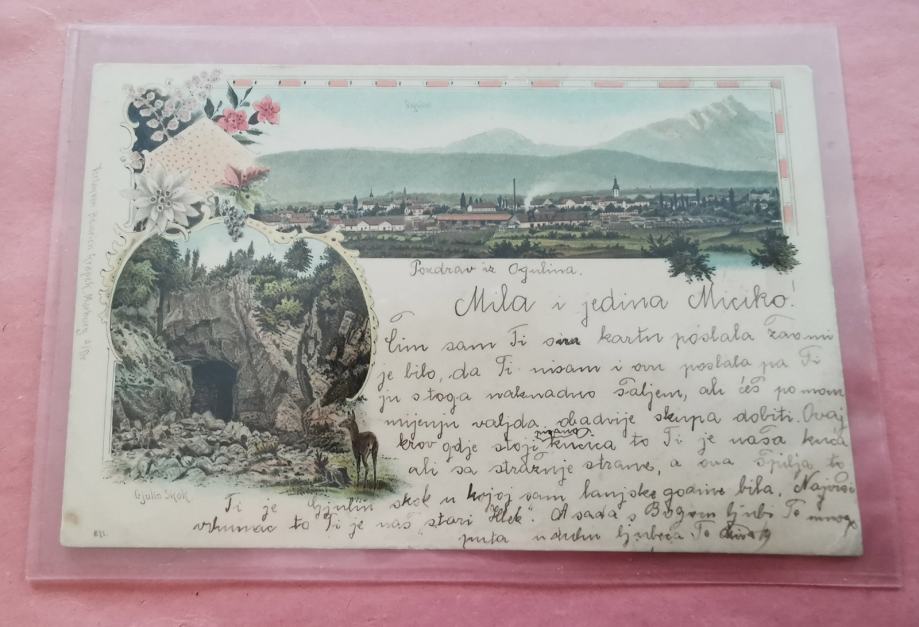 Ogulin
Pozdrav iz Ogulina.
Mila i jedina Miciko!
Čim sam Ti sva kartu poslala žao mi
je bilo, da Ti nisam i ovu poslala pa Ti
ju stoga naknadno šaljem, ali ćeš po mom
mijenju valjda obadvije skupa dobiti. Ovaj
krov gdje stoji kućica to Ti je naša kuća
ali sa stražnje strane, a ova špilja to
Ti je Gjulin skok u kojoj sam lanjske godine bila. Najviši
vrhunac to Ti je naš stari Klek. A sada s Bogom ljubi Te mnogo
puta u duhu ljubeća Te
Gjulin Skok